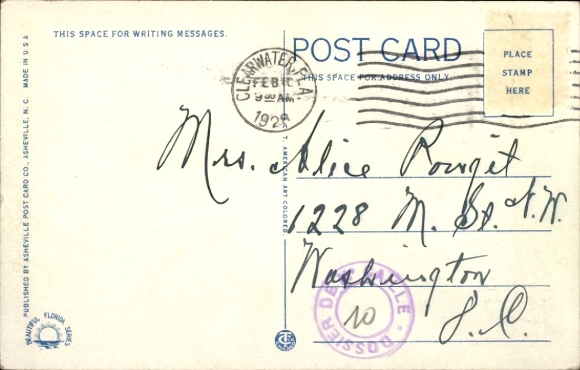 THIS SPACE FOR WRITING MESSAGES.
POST CARD
THIS SPACE FOR ADDRESS ONLY
PLACE
STAMP
HERE
CLEARWATER, FLA.
FEB 10
9 30 AM
1928
Mrs. Alice Rouzit
1228 M. St. N.W.
Washington
D.C.
DOSSIER DE
10
PUBLISHED BY ASHEVILLE POST CARD CO., ASHEVILLE, N. C. MADE IN U S A
C. T. AMERICAN ART COLORED
BEAUTIFUL FLORIDA SERIES